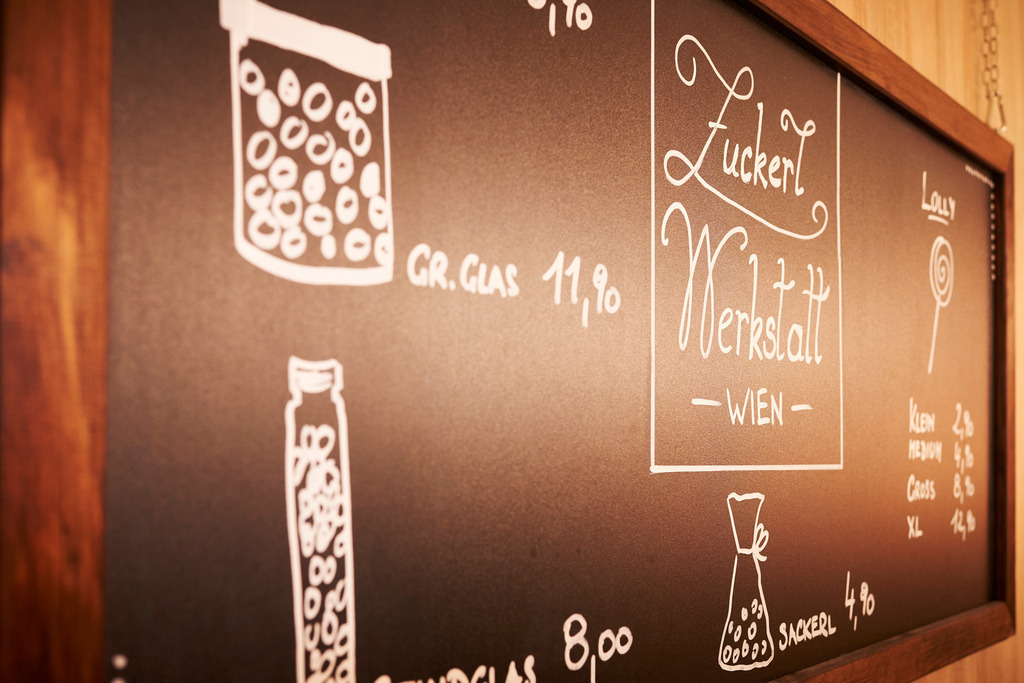 GR. GLAS 11,90
8,00
Zuckerl
Werkstatt
— WIEN —
SACKERL 4,90
LOLLY
KLEIN 2,90
MEDIUM 4,90
GROSS 8,90
XL 12,90